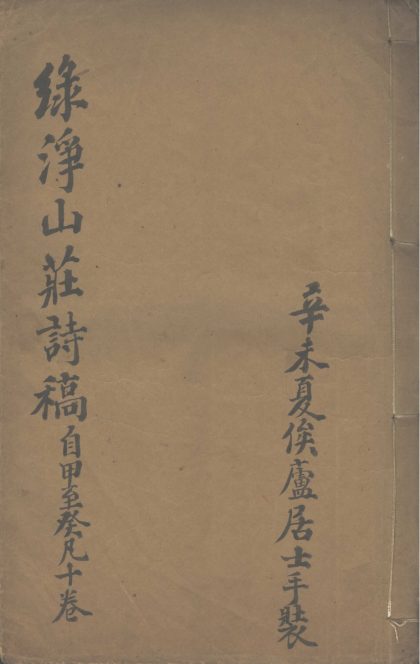 辛未夏俟廬居士手裝
綠淨山莊詩稿自甲至癸凡十卷